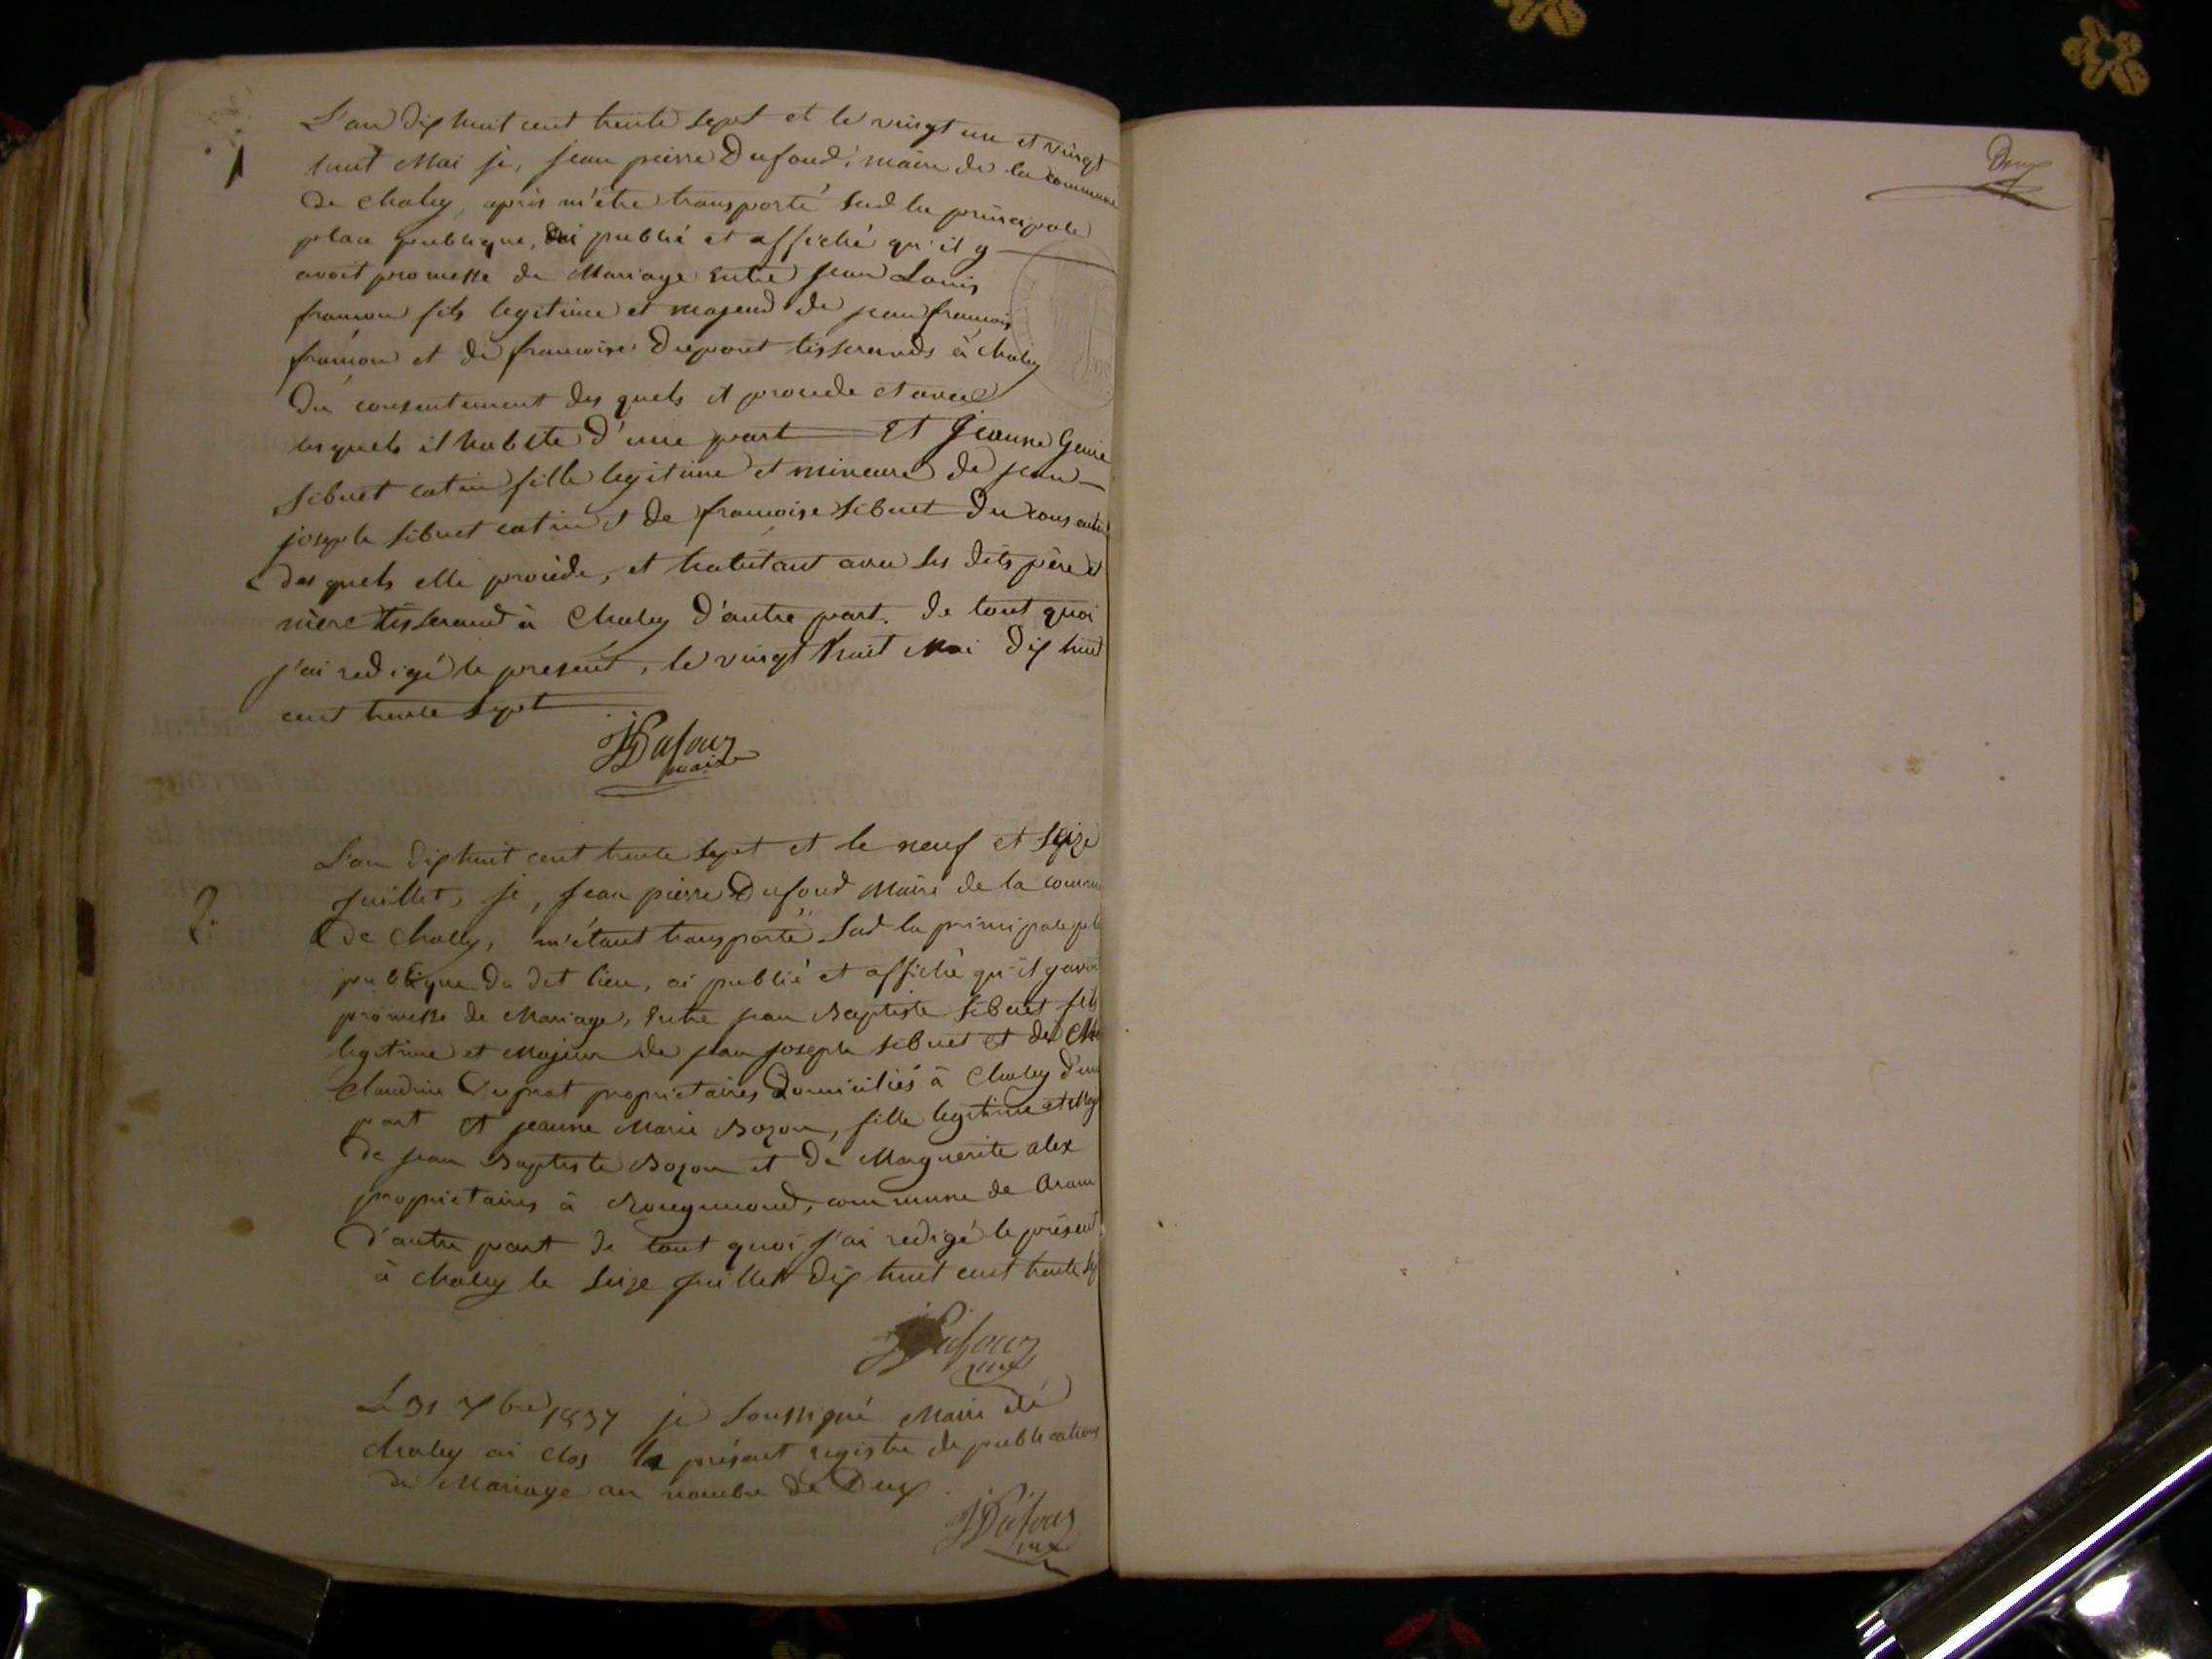 1
L'an dix huit cent trente sept et le vingt un et vingt
huit Mai je, jean pierre Dufour, maire de la commune
De chaley, après m'être transporté sur la principale
place publique, ai publié et affiché qu'il y
avoit promesse de Mariage entre jean Louis
françon fils legitime et majeur de jean françois
françon et de françoise Dupont tisserands à chaley
Du consentement des quels il procede et avec
lesquels il habite D'une part Et Jeanne
Sibuet catin fille legitime et mineure de jean
joseph Sibuet catin et de françoise Sibuet Du consente
des quels elle procède, et habitant avec ses dits père et
mère tisserand à Chaley D'autre part. de tout quoi
j'ai redigé le present, le vingt huit Mai Dix huit
cent trente sept
JPDufour
maire
2.
L'an dix huit cent trente sept et le neuf et seize
juillet, je, jean pierre Dufour Maire de la commu
De chaley, m'étant transporté sur la principale pla
publique du dit lieu, ai publié et affiché qu'il y avoi
promesse de Mariage, entre jean Baptiste Sibuet fils
legitime et Majeur de jean joseph Sibuet et de
Claudine Duprat proprietaires Domiciliés à Chaley d'un
part et jeanne Marie Bozon, fille legitime et Maj
De jean Baptiste Bozon et de Marguerite alex
proprietaires à Rougemond, commune de Aran
D'autre part de tout quoi j'ai redigé le présent
à chaley le seize juillet Dix huit cent trente sep
JPDufour
Le 31 Xbre 1837 je soussigné Maire de
chaley ai clos le présent registre de publications
de Mariage au nombre de Deux
JPDufour
Deux